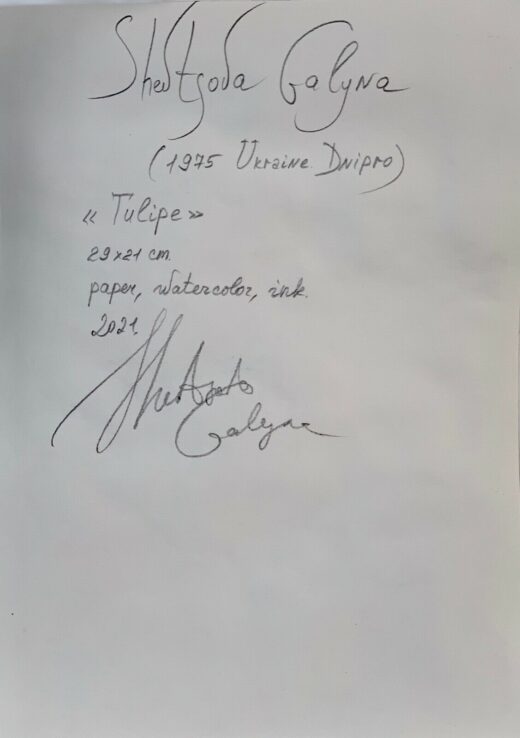 Shevtsova Galyna
(1975 Ukraine Dnipro)
« Tulipe »
29x21 cm.
paper, watercolor, ink.
2021.
Galyna